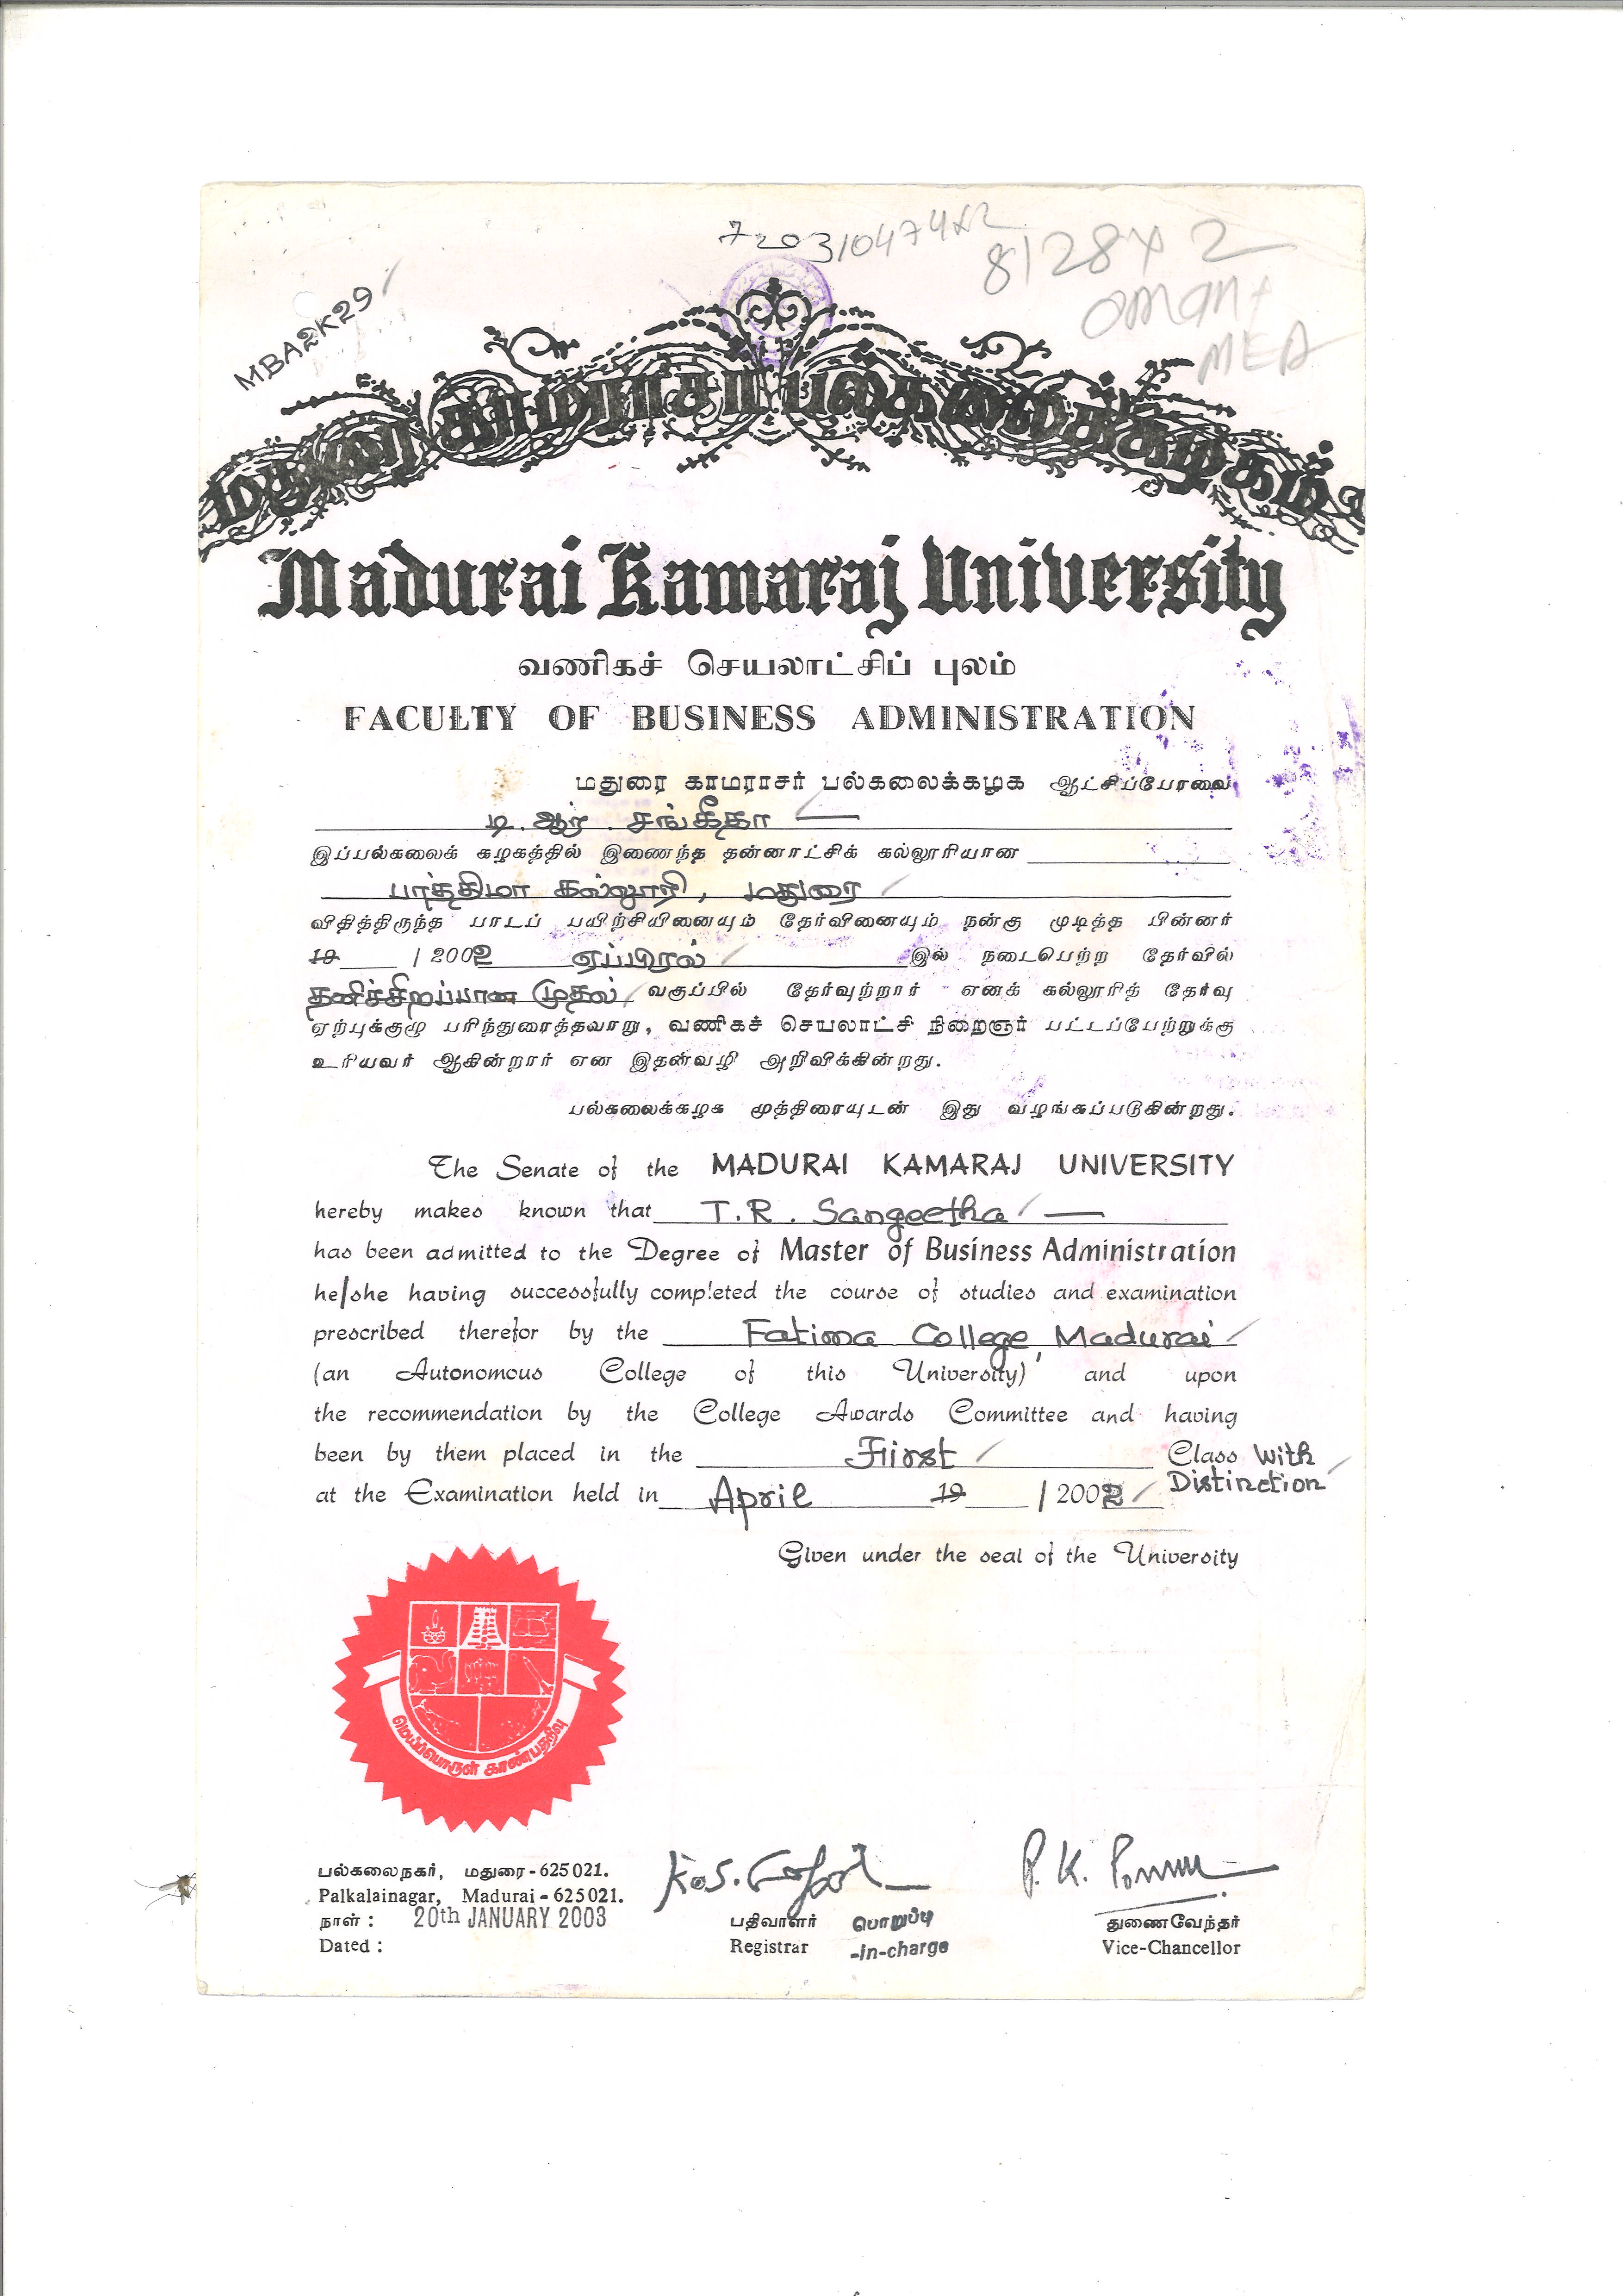 7203104742
8128x2
oman+
MEA
MBA2K29
மதுரை காமராசர் பல்கலைக்கழகம்
Madurai Kamaraj University
வணிகச் செயலாட்சிப் புலம்
FACULTY OF BUSINESS ADMINISTRATION
மதுரை காமராசர் பல்கலைக்கழக ஆட்சிப்பேரவை
டி. ஆர். சங்கீதா
இப்பல்கலைக் கழகத்தில் இணைந்த தன்னாட்சிக் கல்லூரியான
பாத்திமா கல்லூரி, மதுரை
விதித்திருந்த பாடப் பயிற்சியினையும் தேர்வினையும் நன்கு முடித்த பின்னர்
19 / 2002 ஏப்பிரல் இல் நடைபெற்ற தேர்வில்
தனிச்சிறப்பான முதல் வகுப்பில் தேர்வுற்றார் எனக் கல்லூரித் தேர்வு
ஏற்புக்குழு பரிந்துரைத்தவாறு, வணிகச் செயலாட்சி நிறைஞர் பட்டப்பேற்றுக்கு
உரியவர் ஆகின்றார் என இதன்வழி அறிவிக்கின்றது.
பல்கலைக்கழக முத்திரையுடன் இது வழங்கப்படுகின்றது.
The Senate of the MADURAI KAMARAJ UNIVERSITY
hereby makes known that T.R. Sangeetha
has been admitted to the Degree of Master of Business Administration
he/she having successfully completed the course of studies and examination
prescribed therefor by the Fatima College, Madurai
(an Autonomous College of this University) and upon
the recommendation by the College Awards Committee and having
been by them placed in the First Class With
Distinction
at the Examination held in April 19 / 2002
Given under the seal of the University
மெய்ப்பொருள் காண்பதறிவு
பல்கலைநகர், மதுரை - 625 021.
Palkalainagar, Madurai - 625 021.
நாள் : 20th JANUARY 2003
Dated :
பதிவாளர் பொறுப்பு
Registrar -in-charge
துணைவேந்தர்
Vice-Chancellor